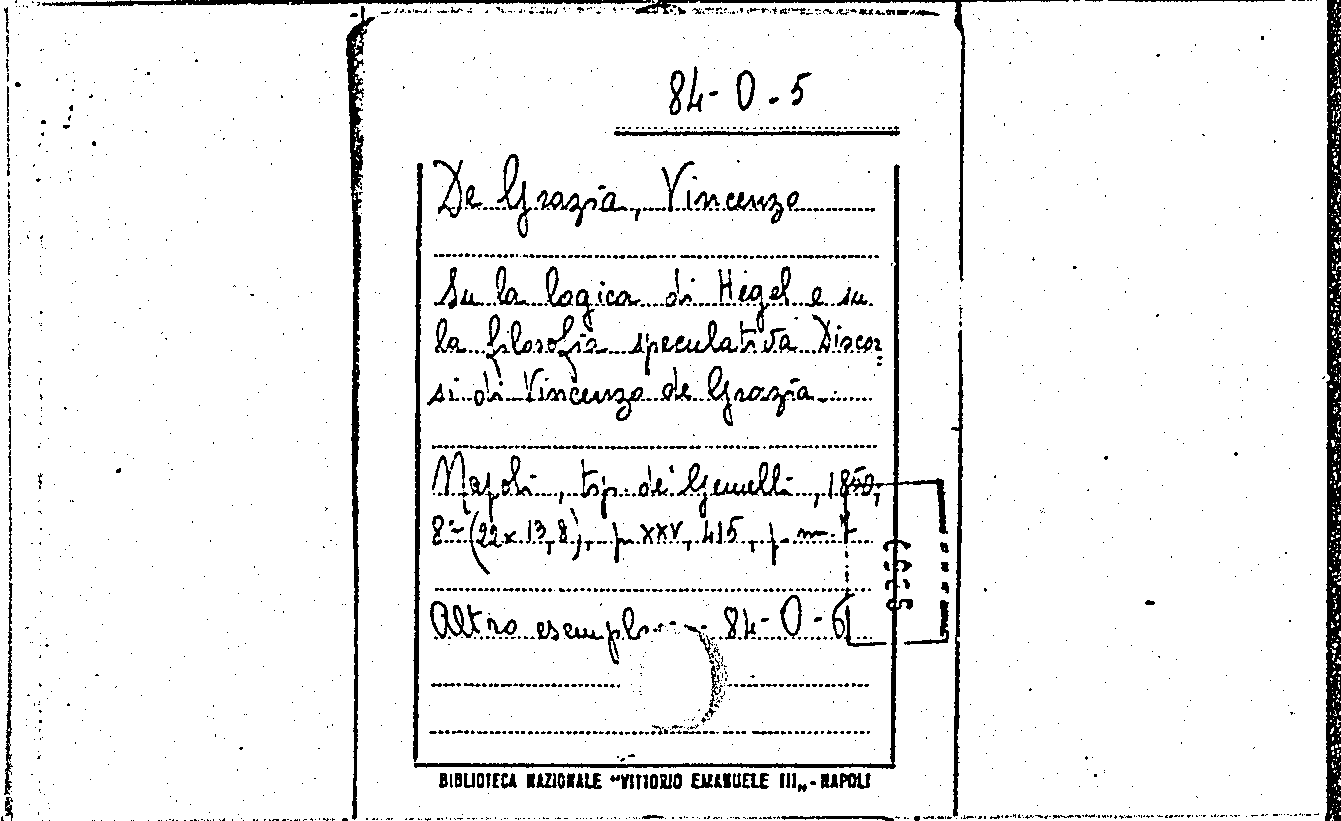 84-O-5
De Grazia, Vincenzo
Su la logica di Hegel e su
la filosofia speculativa Discor=
si di Vincenzo de Grazia.
Napoli, tip. dei Gemelli, 1850,
8° (22x13,8), p. XXV, 415, p. m. 
Altro esemplare 84-O-6
BIBLIOTECA NAZIONALE "VITTORIO EMANUELE III„ - NAPOLI